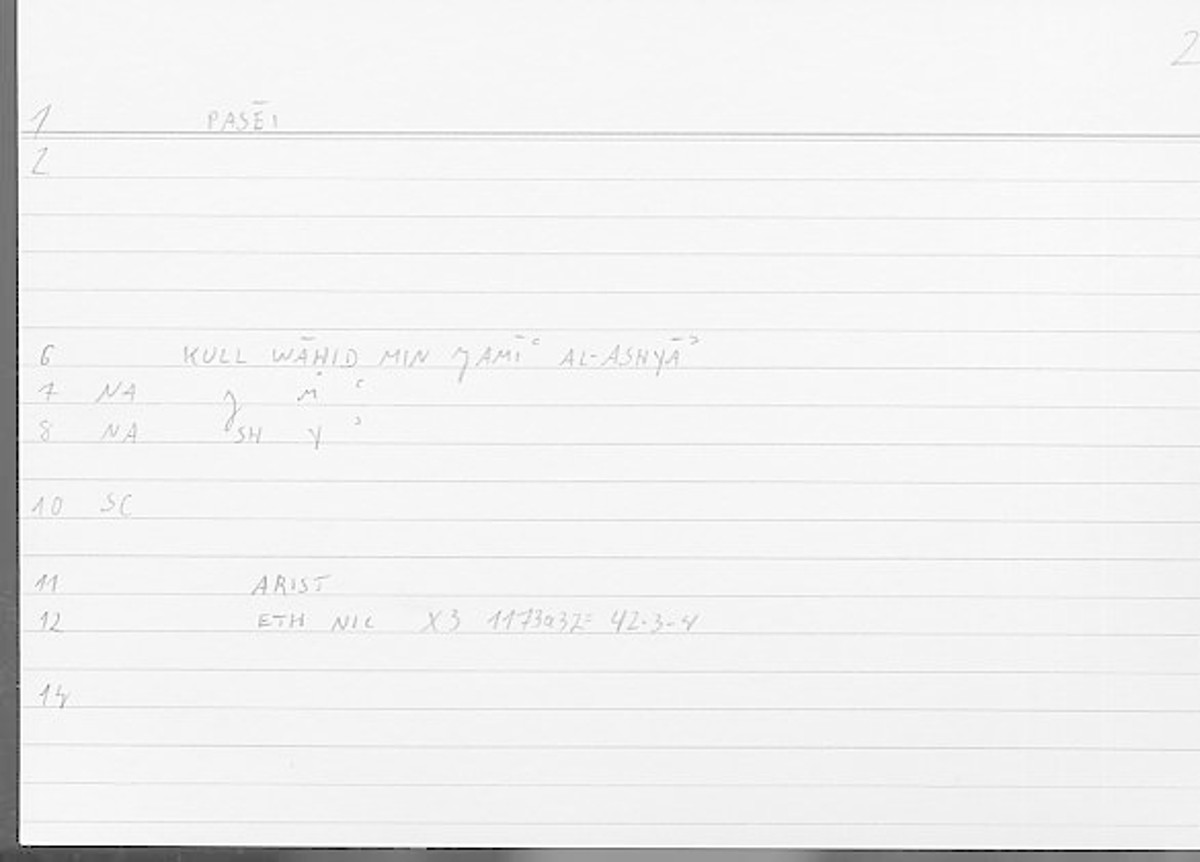 2
1 PASĒI
2
6 KULL WĀḤID MIN ǧAMĪʿ AL-ASHYĀʾ
7 NA ǧ M ʿ
8 NA SH Y ʾ
10 SC
11 ARIST
12 ETH NIC X3 1173a32= 42.3-4
14